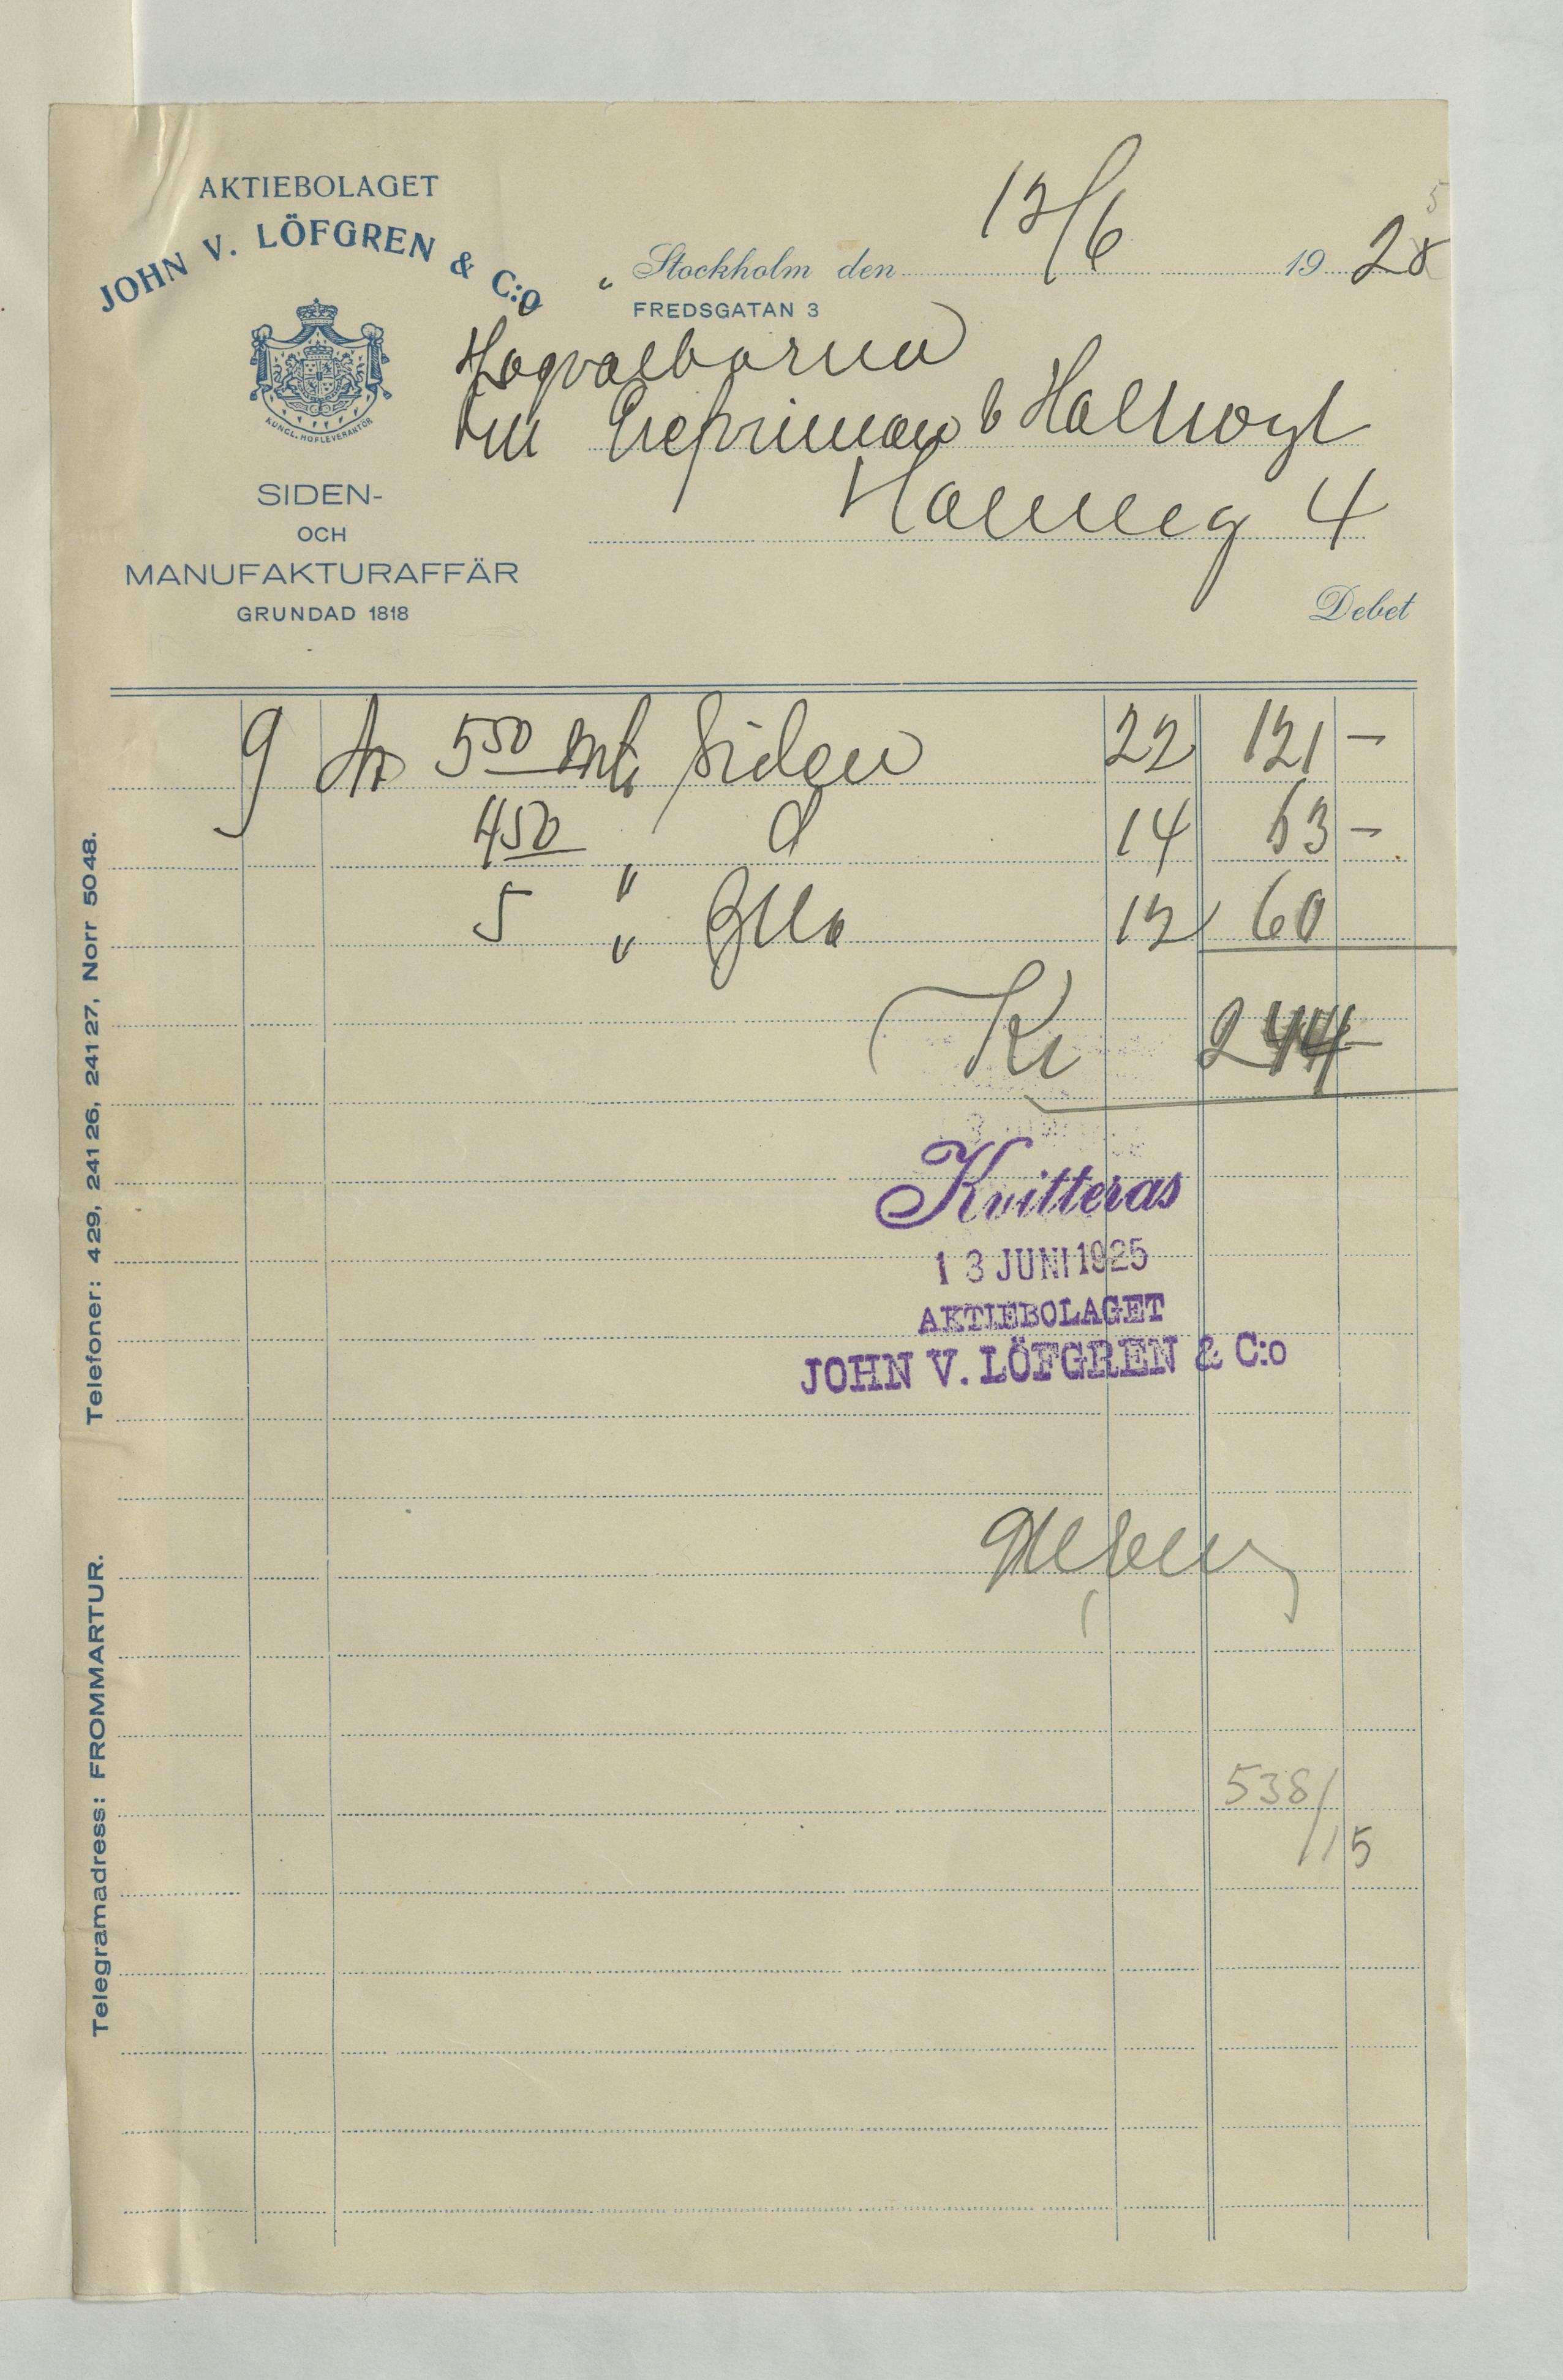 AKTIEBOLAGET
JOHN V. LÖFGREN & C:o
KUNGL. HOFLEVERANTÖR
SIDEN-
OCH
MANUFAKTURAFFÄR
GRUNDAD 1818
Stockholm den 12/6 1925
FREDSGATAN 3
Högvälborna
Grefvinnan Hallwyl
Hamng 4
Debet
9 550 mtr Siden 22 121 —
450 " d 14 63 —
5 " 12 60
Kr 244 —
Kvitteras
13 JUNI 1925
AKTIEBOLAGET
JOHN V. LÖFGREN & C:o
538/15
Telefoner: 429, 241 26, 241 27, Norr 50 48.
Telegramadress: FROMMARTUR.